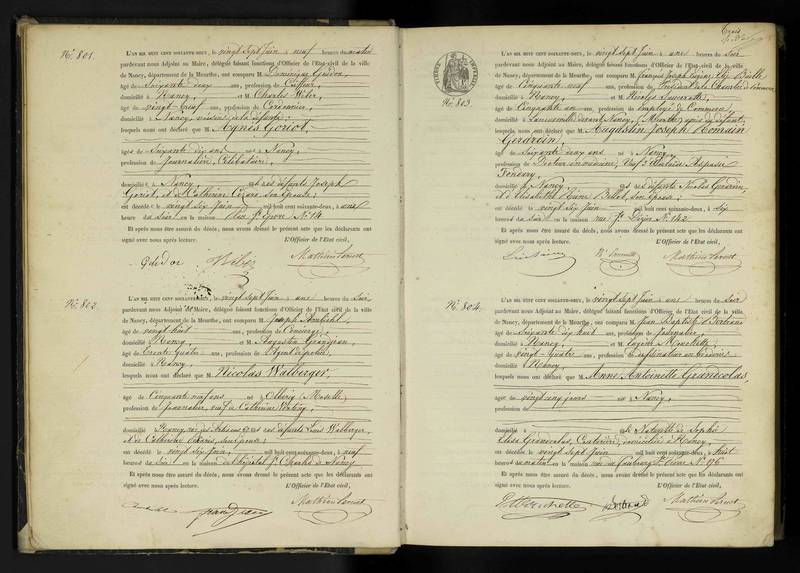 N.º 801.
L'AN MIL HUIT CENT SOIXANTE-DEUX, le vingt Sept Juin à neuf heures du matin
pardevant nous Adjoint au Maire, délégué faisant fonctions d'Officier de l'Etat-civil de la ville
de Nancy, département de la Meurthe, ont comparu M. Dominique
âgé de Soixante deux ans, profession de
domicilié à Nancy, et M. Charles
âgé de vingt-neuf ans, profession de Cordonnier,
domicilié à Nancy, voisins de la défunte;
lesquels nous ont déclaré que M. Agnès Goriot,
âgée de Soixante dix ans née à Nancy
profession de Journalière, Célibataire,
domiciliée à Nancy, de défunts Joseph
Goriot, et de Catherine son Epouse;
est décédée le vingt Six Juin mil huit cent soixante-deux, à une
heure du soir en la maison N.º 14
Et après nous être assuré du décès, nous avons dressé le présent acte que les déclarants ont
signé avec nous après lecture. L'Officier de l'Etat civil,
N.º 802.
L'AN MIL HUIT CENT SOIXANTE-DEUX, le vingt Sept Juin à une heure du Soir
pardevant nous Adjoint au Maire, délégué faisant fonctions d'Officier de l'Etat civil de la ville
de Nancy, département de la Meurthe, ont comparu M. Joseph
âgé de vingt huit ans, profession de Concierge,
domicilié à Nancy, et M. Augustin
âgé de Trente quatre ans, profession d'Agent de police,
domicilié à Nancy,
lesquels nous ont déclaré que M. Nicolas Walberger,
âgé de Cinquante neuf ans né à (Moselle)
profession de Journalier, veuf de Catherine
domicilié à Nancy, rue des Artisans de défunts Louis Walberger,
et de Catherine
est décédé le vingt Six Juin, mil huit cent soixante-deux, à neuf
heures du Soir en la maison de l'hôpital S.t Charles de Nancy
Et après nous être assuré du décès, nous avons dressé le présent acte que les déclarants ont
signé avec nous après lecture. L'Officier de l'Etat civil,
N.º 803.
L'AN MIL HUIT CENT SOIXANTE-DEUX, le vingt Sept Juin à une heure du Soir
pardevant nous Adjoint au Maire, délégué faisant fonctions d'Officier de l'Etat civil de la ville
de Nancy, département de la Meurthe, ont comparu M. François Joseph Eugène
âgé de Cinquante neuf ans, profession de Président de la Chambre de Commerce
domicilié à Nancy, et M. Nicolas
âgé de Cinquante un ans, profession d'employé de Commerce
domicilié à devant Nancy, (Meurthe)
lesquels nous ont déclaré que M. Augustin Joseph Romain
Gerdrein
âgé de Soixante deux ans né à Nancy,
profession de Docteur en médecine, Veuf d'Adélaïde Aspasie
Fondary
domicilié à Nancy de défunts Nicolas Gerdrein,
et d'Elisabeth son Epouse;
est décédé le vingt Six Juin mil huit cent soixante-deux, à Six
heures du Soir en la maison rue S.t Dizier N.º 142
Et après nous être assuré du décès, nous avons dressé le présent acte que les déclarants ont
signé avec nous après lecture. L'Officier de l'Etat civil,
N.º 804.
L'AN MIL HUIT CENT SOIXANTE-DEUX, le vingt Sept Juin à une heure du Soir
pardevant nous Adjoint au Maire, délégué faisant fonctions d'Officier de l'Etat civil de la ville
de Nancy, département de la Meurthe, ont comparu M. Jean Baptiste Bertrand
âgé de Soixante dix huit ans, profession de Journalier,
domicilié à Nancy, et M. Eugène
âgé de vingt-quatre ans, profession de
domicilié à Nancy,
lesquels nous ont déclaré que M. Anne Antoinette Grandcolas,
âgée de vingt cinq jours née à Nancy
profession de
domiciliée à fille Naturelle de Sophie
Elise Grandcolas, Couturière, domiciliée à Nancy,
est décédée le vingt Sept Juin mil huit cent soixante-deux, à huit
heures du matin en la maison rue du faubourg S.t Pierre N.º 96
Et après nous être assuré du décès, nous avons dressé le présent acte que les déclarants ont
signé avec nous après lecture. L'Officier de l'Etat civil,